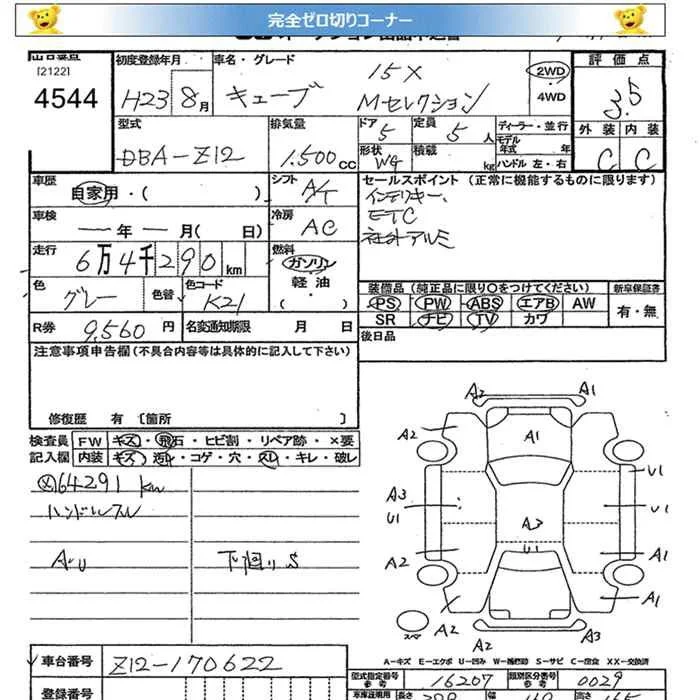 完全ゼロ切りコーナー
[2122]
4544
初度登録年月
H23 8月
車名・グレード
キューブ
15X
Mセレクション
2WD
・4WD
評価点
3.5
外装 内装
C C
型式
DBA-Z12
排気量
1.500cc
ドア 5
定員 5人
形状 W4
積載 kg
ディーラー・並行
モデル年式 年
ハンドル 左・右
車歴
自家用・( )
シフト A/T
セールスポイント(正常に機能するものに限ります)
インテリキー、
ETC
社外アルミ
車検
年 月( 日)
冷房 AC
走行
6万4千290km
燃料
ガソリン
軽油
・( )
色 グレー
色替
色コード K21
装備品(純正品に限り○をつけてください)
新車保証書
PS PW ABS エアB AW
SR ナビ TV カワ
有・無
R券 9,560円
名変通知期限 月 日
後日品
注意事項申告欄(不具合内容等は具体的に記入して下さい)
修復歴 有 〔箇所 〕
検査員記入欄
FW キズ・飛石・ヒビ割・リペア跡・×要
内装 キズ・汚レ・コゲ・穴・スレ・キレ・破レ
64291km
ハンドルスレ
AU
下廻りS
A2 A1
A2 A1
A1 U1
A3
U1 U1
U1
A2 A1
A2 A1
A2 A3
スペア
A-キズ E-エクボ U-凹み W-補修跡 S-サビ C-腐食 XX-交換済
車台番号 Z12-170622
型式指定番号 参考 16207
類別区分番号 参考 0029
登録番号